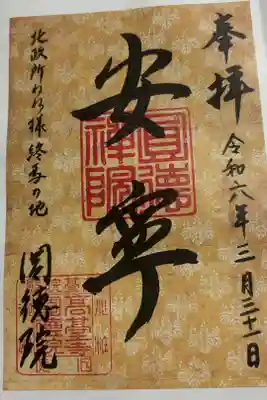 奉拝
令和六年三月三十一日
安寧
圓德
禪院
北政所ねね様終焉の地
圓徳院